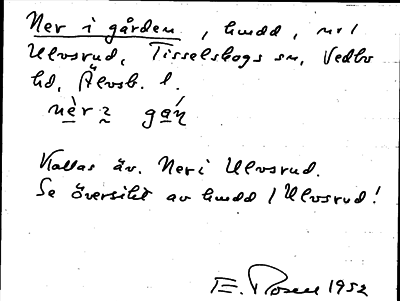 Ner i gården, hmdd, nr 1
Ulvsrud, Tisselskogs sn, Vedbo
hd, Älvsb. l.
nèr 2 gáɳ
Kallas äv. Ner i Ulvsrud.
Se översikt av hmdd / Ulvsrud!
E. Rosell 1952